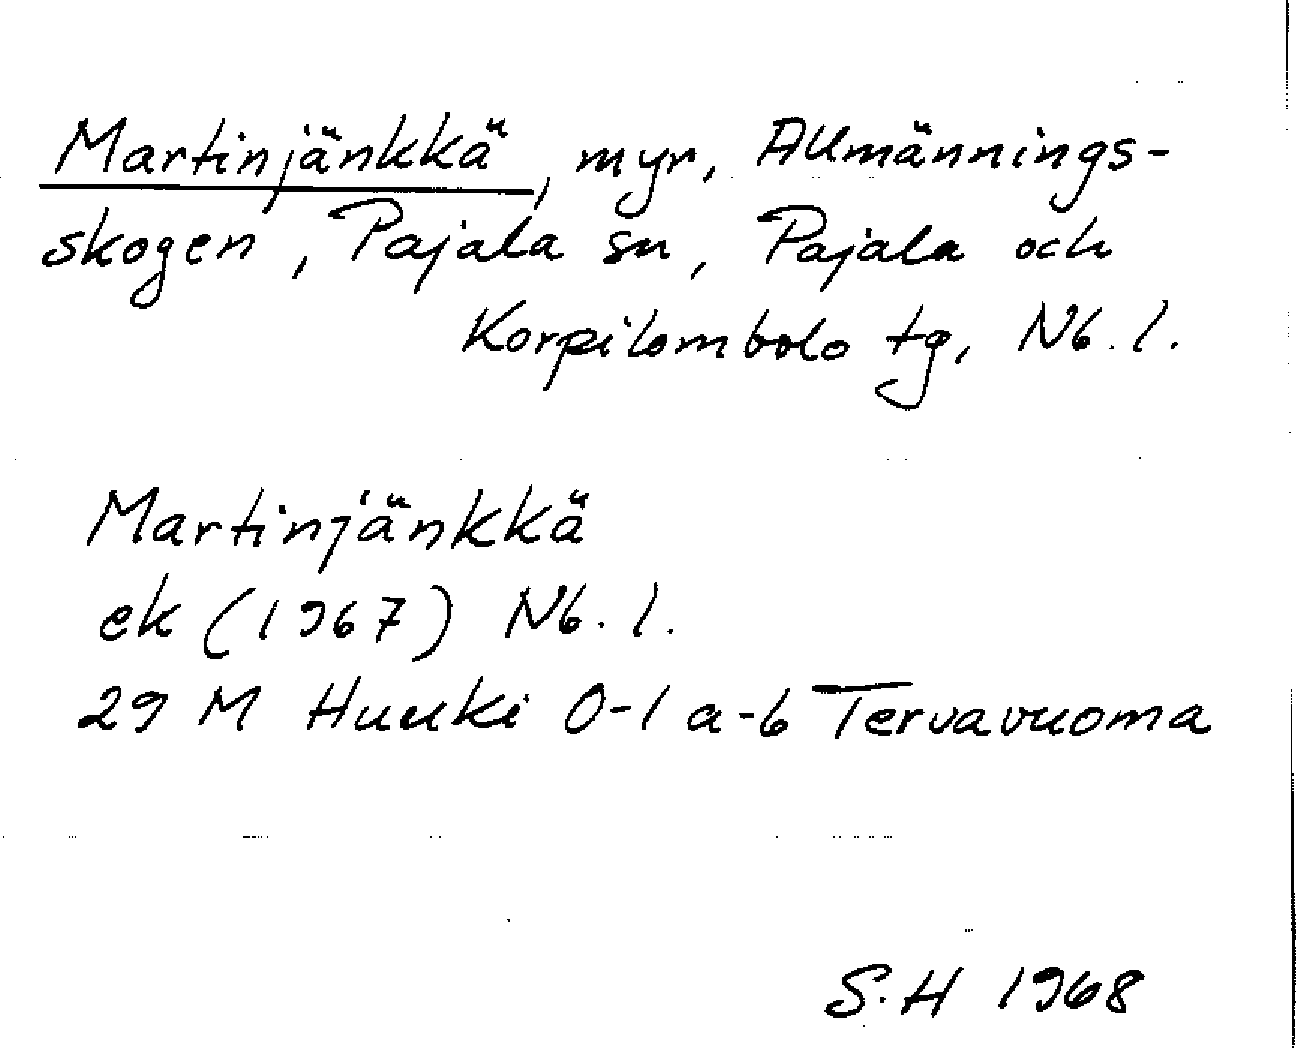 Martinjänkkä, myr, Allmännings-
skogen, Pajala sn, Pajala och
Korpilombolo tg, Nb. l.
Martinjänkkä
ek (1967) Nb. l.
29 M Huuki 0-1 a-b Tervavuoma
S.H 1968